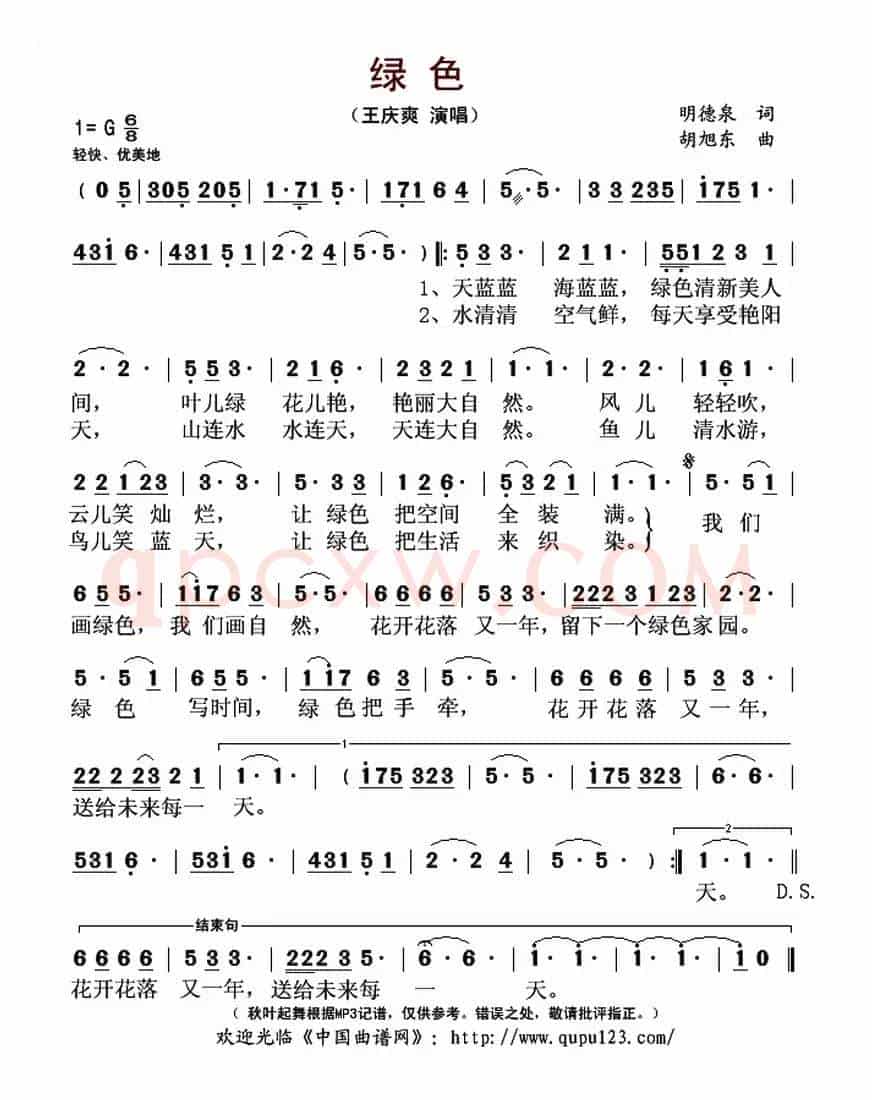 绿色
（王庆爽 演唱）
明德泉 词
胡旭东 曲
1= G 6/8
轻快、优美地
( 0 5 | 305 205 | 1·71 5· | 171 6 4 | 5·5· | 3 3 235 | i175 1· |
431 6· | 431 5 1 | 2·2 4 | 5·5· ) ‖: 5 3 3· | 2 1 1· | 551 2 3 1 |
1、天蓝蓝 海蓝蓝， 绿色清新美人
2、水清清 空气鲜， 每天享受艳阳
2·2· | 5 5 3· | 2 1 6· | 2 3 2 1 | 1·1· | 2·2· | 1 6 1· |
间， 叶儿绿 花儿艳， 艳丽大自 然。 风 儿 轻轻吹，
天， 山连水 水连天， 天连大自 然。 鱼 儿 清水游，
2 2 1 2 3 | 3·3· | 5·3 3 | 1 2 6· | 5 3 2 1 | 1·1· | 5·5 1 |
云儿笑 灿 烂， 让 绿色 把空间 全 装 满。 我 们
鸟儿笑 蓝 天， 让 绿色 把生活 来 织 染。
6 5 5· | 1 i 7 6 3 | 5·5· | 6 6 6 6 | 5 3 3· | 222 3 1 23 | 2·2· |
画绿色， 我 们画自 然， 花开花落 又一年， 留下一个绿色家 园。
5·5 1 | 6 5 5· | 1 i 7 6 3 | 5·5· | 6 6 6 6 | 5 3 3· |
绿 色 写时间， 绿 色把 手 牵， 花 开 花 落 又 一 年，
1
22 2 23 2 1 | 1·1· | ( i75 323 | 5·5· | i175 323 | 6·6· |
送给未来每一 天。
2
531 6· | 53i 6· | 431 5 1 | 2·2 4 | 5·5· ) :‖ 1·1· ‖
天。 D.S.
结束句
6 6 6 6 | 5 3 3· | 222 3 5· | 6·6· | i·i· | i·i· | i 0 ‖
花开花落 又一年， 送给未来每 一 天。
（ 秋叶起舞根据MP3记谱，仅供参考。错误之处，敬请批评指正。）
欢迎光临《中国曲谱网》：http://www.qupu123.com/
qpcxw.COM